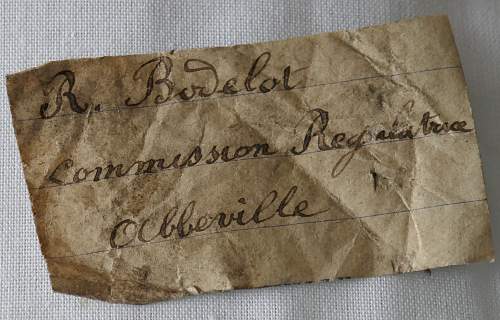 R. Bodelot
Commission Régulatrice
Abbeville